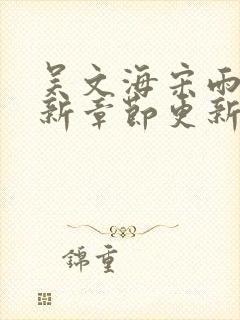 吴文海宋雨
新章节更新
錦重